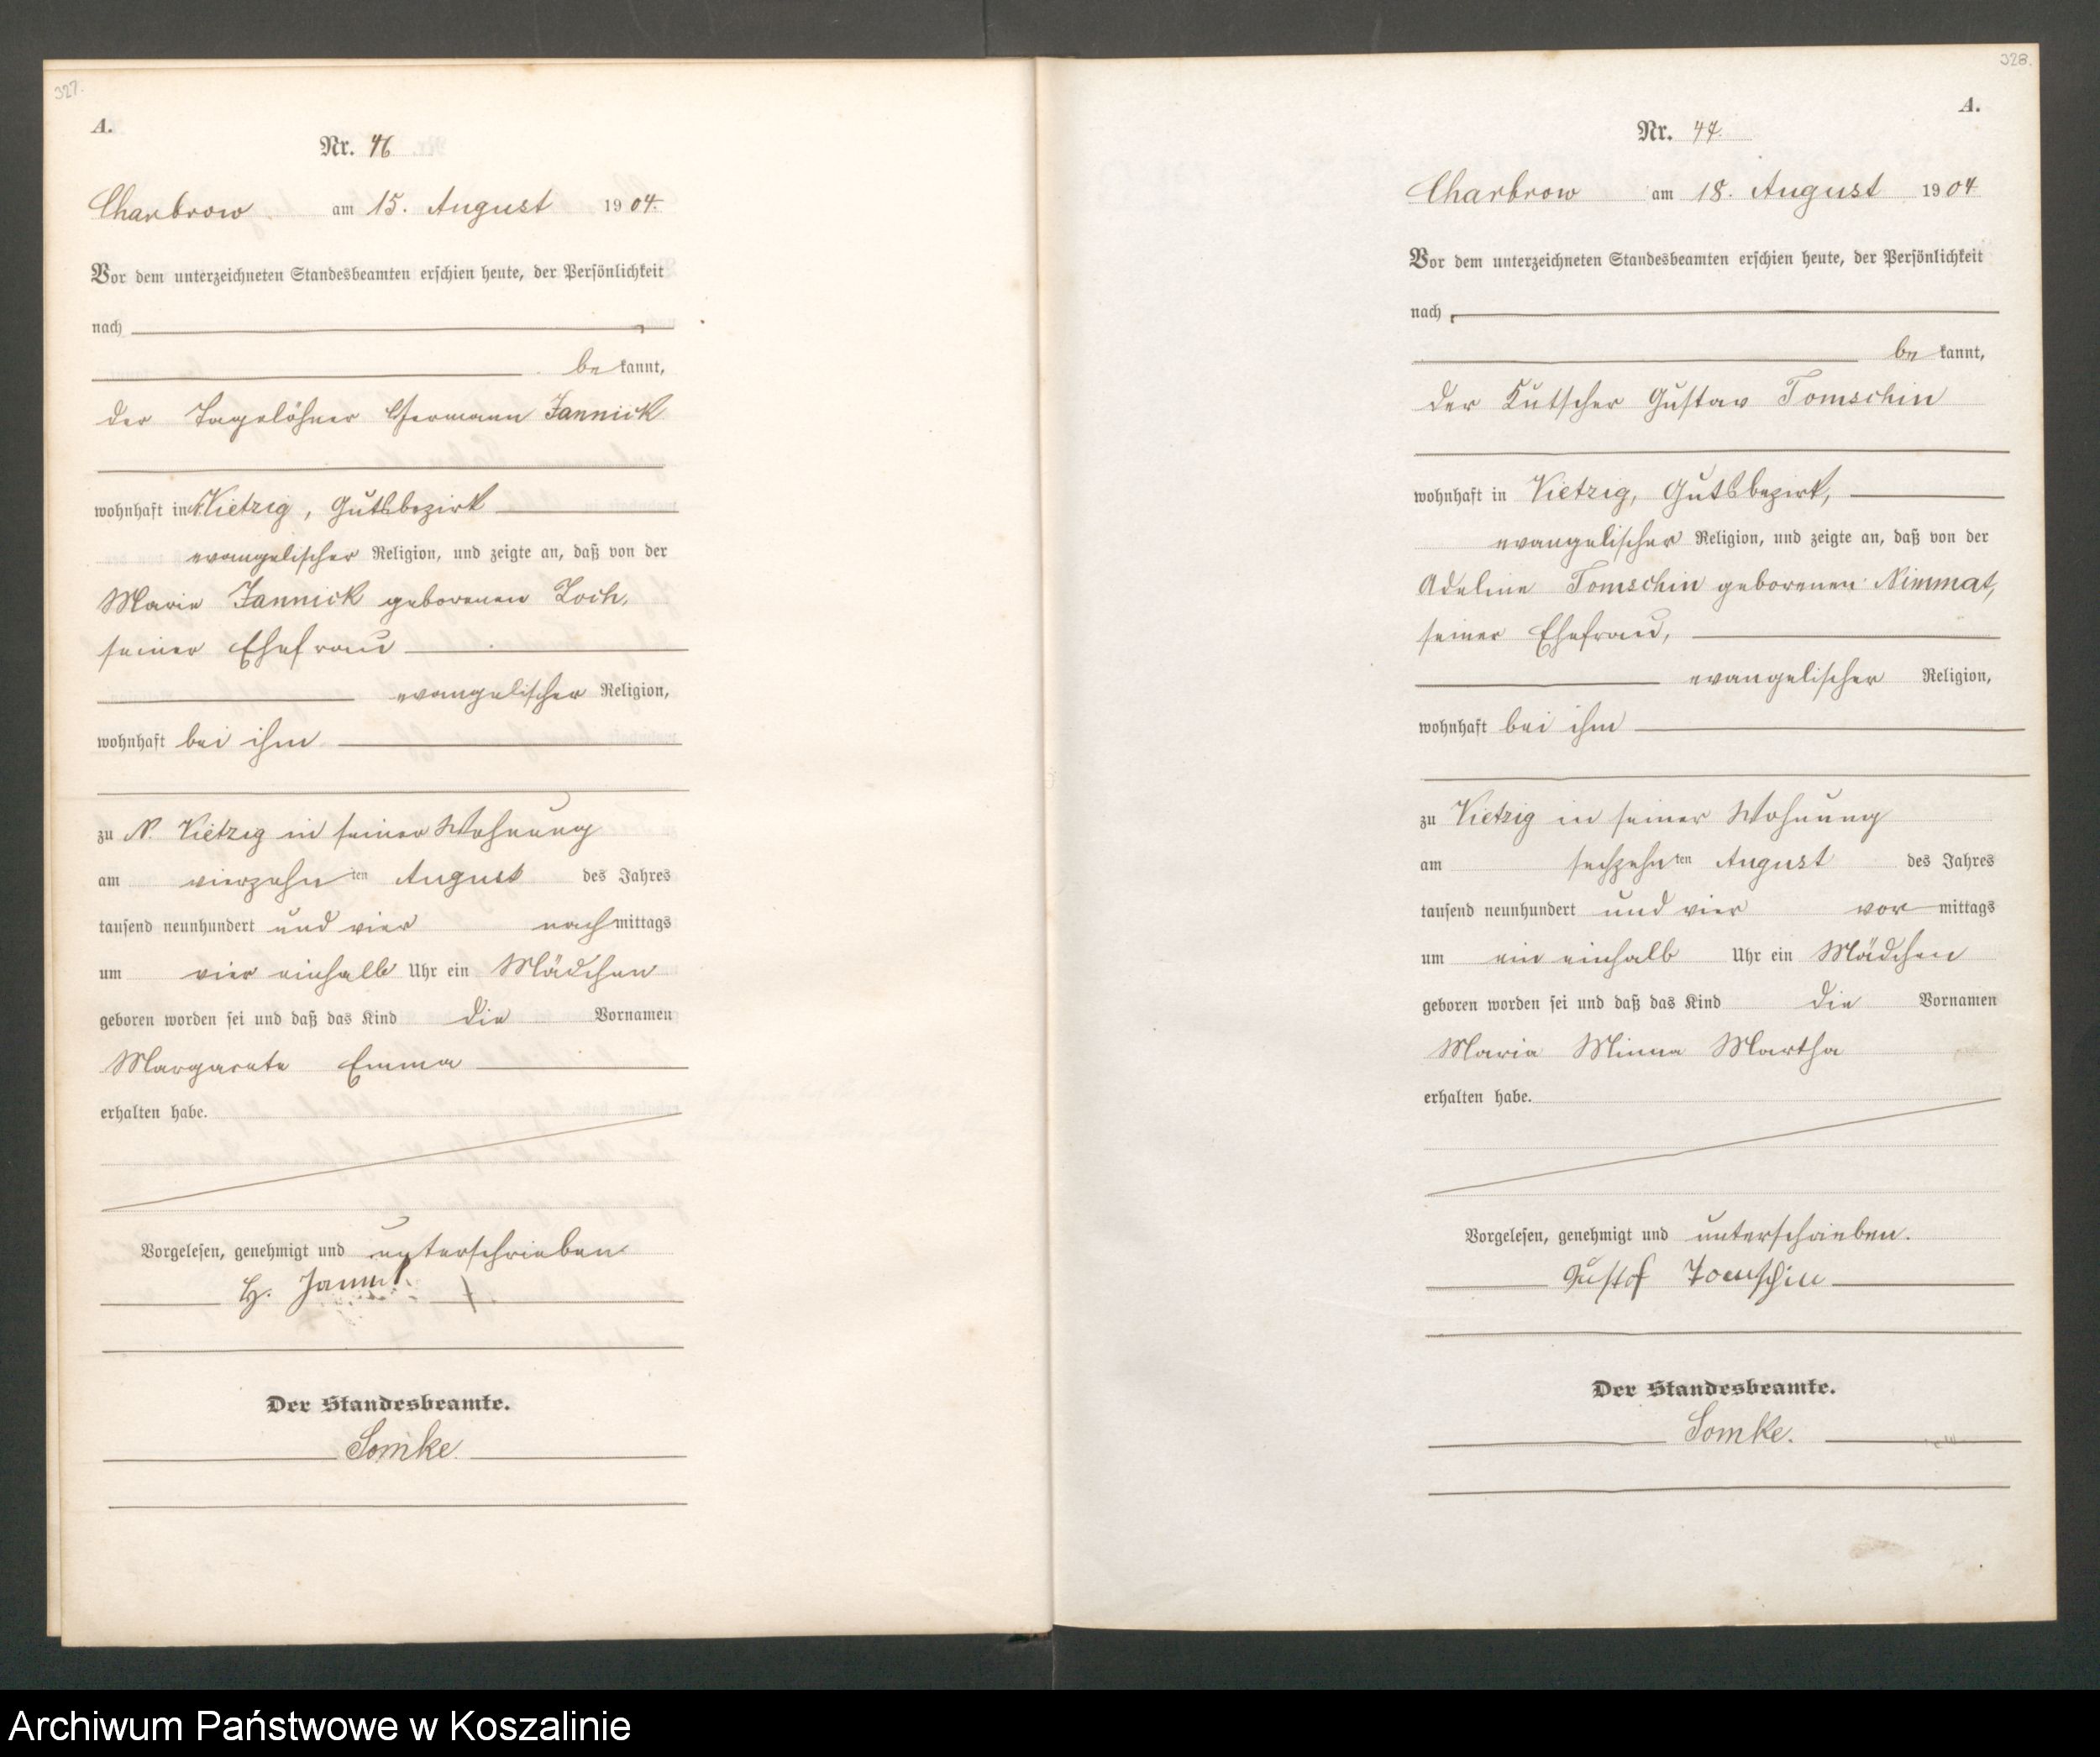 327.
A.
Nr. 46
Charbrow am 15. August 1904.
Vor dem unterzeichneten Standesbeamten erschien heute, der Persönlichkeit
nach
bekannt,
der Tagelöhner Hermann Jannick
wohnhaft in N. Vietzig, Gutsbezirk
evangelischer Religion, und zeigte an, daß von der
Marie Jannick geborenen Zoch,
seiner Ehefrau
evangelischer Religion,
wohnhaft bei ihm
zu N. Vietzig in seiner Wohnung
am vierzehnten August des Jahres
tausend neunhundert und vier nachmittags
um vier einhalb Uhr ein Mädchen
geboren worden sei und daß das Kind die Vornamen
Margarete Emma
erhalten habe.
Vorgelesen, genehmigt und unterschrieben
H.
Der Standesbeamte.
Somke.
328.
A.
Nr. 47.
Charbrow am 18. August 1904
Vor dem unterzeichneten Standesbeamten erschien heute, der Persönlichkeit
nach
bekannt,
der Kutscher Gustav Tomschin
wohnhaft in Vietzig, Gutsbezirk,
evangelischer Religion, und zeigte an, daß von der
Adeline Tomschin geborenen Nimmat,
seiner Ehefrau,
evangelischer Religion,
wohnhaft bei ihm
zu Vietzig in seiner Wohnung
am sechzehnten August des Jahres
tausend neunhundert und vier vormittags
um ein einhalb Uhr ein Mädchen
geboren worden sei und daß das Kind die Vornamen
Maria Minna Martha
erhalten habe.
Vorgelesen, genehmigt und unterschrieben.
Gustof Tomschin
Der Standesbeamte.
Somke.
Archiwum Państwowe w Koszalinie